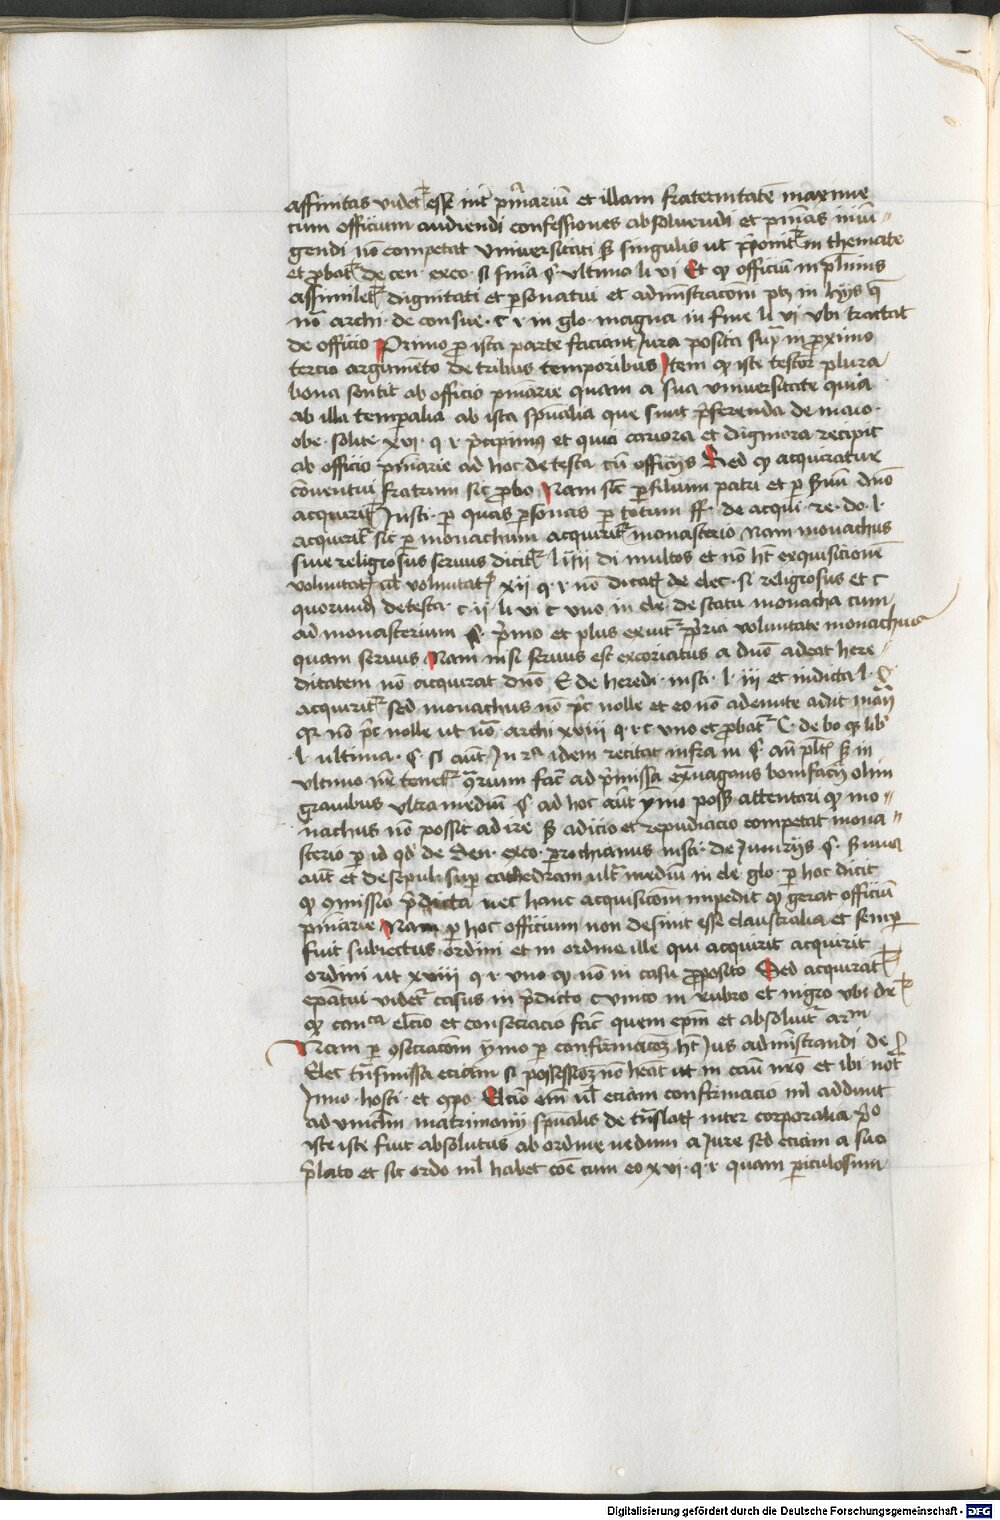 affinitas videtr esse int pmariu et illam fraternitate maxime
cum officium audiendi confessiones absoluendi et pnias iniu
gendi no competat vniuersitati s singulis ut pponitr in themate
et pbatr de cen. exco. si sma §. vltimo li vi Et qz officiu
assimiletr dignitati et psonatui et administracom ptz in hijs q
no archi. de consue. c i in glo. magna in fine li vi vbi tractat
de officio Primo p ista parte faciant Jura posita sup in proximo
tercio argumento de tribus temporibus Item qz iste testor plura
bona sentit ab officio pniarie quam a sua vniuersitate quia
ab illa tempalia ab ista spualia que sunt pferenda de maio.
obe. solite. xvi. q i pcipimus et quia cariora et digniora recipit
ab officio pniarie ad hoc de testa cu officijs Sed qz acquiratur
conuentui fratrum sic pbo Nam sic p filium patri et p suu dno
acquiritr Insti. p quas psonas p totum ff. de acqui. re. do. l.
acquiritr sic p monachum acquiritr monasterio Nam monachus
siue religiosus seruus dicitr liiii di multos et no ht exquisicione
voluntatz ul voluntatz xii q. i. no dicatz de elec. si religiosus et c
quorundz de testa. c. ii. li vi c vno in ele. de statu monacha cum
ad monasterium §. pmo et plus exuitr ppria voluntate monachus
quam seruus Nam nisi seruus est excoriatus a duo adeat here
ditatem no acquirat dno C de heredi. insti. l. iii et in dicta l. §
acquiritr sed monachus no pt nolle et eo non adeunte adit
qr no pt nolle ut no. archi xviii q. i. c vno et pbatr C. de bo q lib
l. vltima. §. si aut. In ra idem recitat infra in §. s in
vltimo ne tenetr qrium fac ad pmissa exuagans bonifacij olim
grauibus vltra mediu § ad hoc aut ymo poss attentari qz mo
nachus no possit adire s adicio et repudiacio competat mona
sterio p id qd de sen. exco. parrochianus insti. de Iniurijs §. seruus
aut et de sepul. sup cathedram ult mediu in ele glo. p hoc dicit
qz omissio pdicta nec hanc acquisicom impedit qz gerat officiu
pniarie Nam p hoc officium non desinit esse claustralia et semp
fuit subiectus ordini et in ordine ille qui acquirit acquirit
ordini ut xviii q. i. vno qz no in casu pposito Sed acquiratr
epatui videtr casus in pdicto c vnico in rubro et nigro vbi dr
qz canca elcio et consecracio fac quem epm et absoluit arm
Nam p osecracom ymo p confirmacoz ht Jus administrandi de
Elec trasmissa eciam si possessioz no heat ut in eciu nro et ibi not
Inno. hosti. et opo. Elcio em ul eciam confirmacio nil addunt
ad vinclm matrimonij spualis de traslatz inter corporalia. po
iste iste fuit absolutus ab ordine nedum a Jure sed eciam a suo
plato et sic ordo nil habet coe cum eo xvi. q. i. quam piculosum
Digitalisierung gefördert durch die Deutsche Forschungsgemeinschaft - DFG